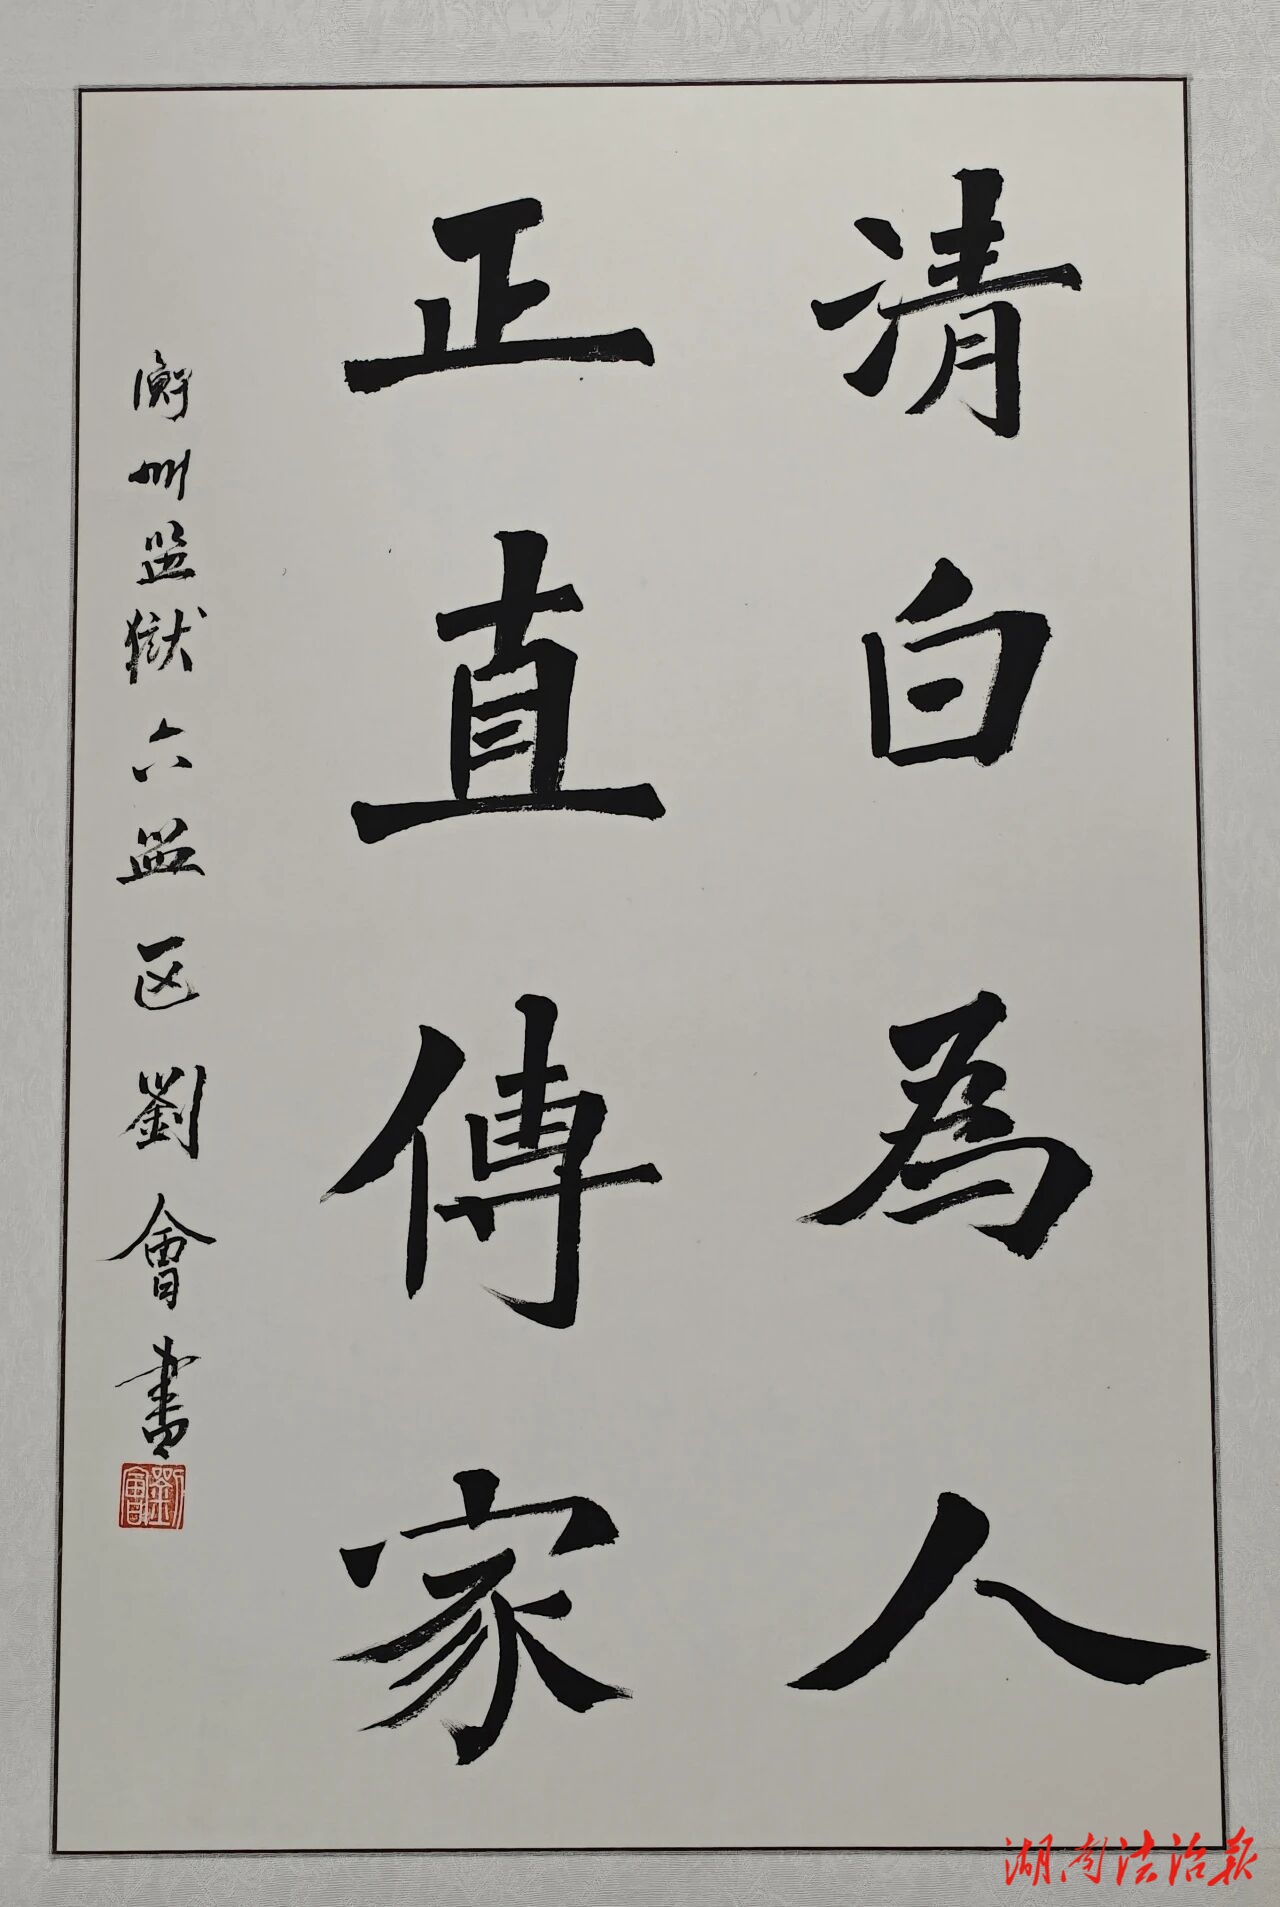 清白為人
正直傳家
衡州监獄六监区劉會書
劉會
湖南法治报